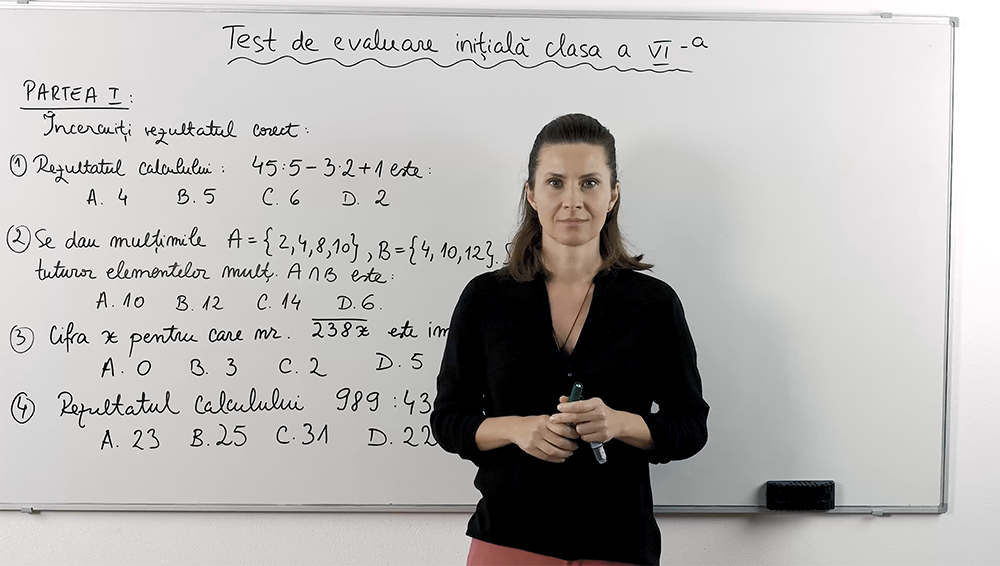 Test de evaluare inițială clasa a VI-a
PARTEA I:
Încercuiți rezultatul corect:
① Rezultatul calculului: 45:5-3·2+1 este:
A. 4 B. 5 C. 6 D. 2
② Se dau mulțimile A={2,4,8,10}, B={4,10,12}.
tuturor elementelor mulț. A∩B este:
A. 10 B. 12 C. 14 D. 6.
③ Cifra x pentru care nr. 238x este im
A. 0 B. 3 C. 2 D. 5
④ Rezultatul calculului 989:43
A. 23 B. 25 C. 31 D. 22